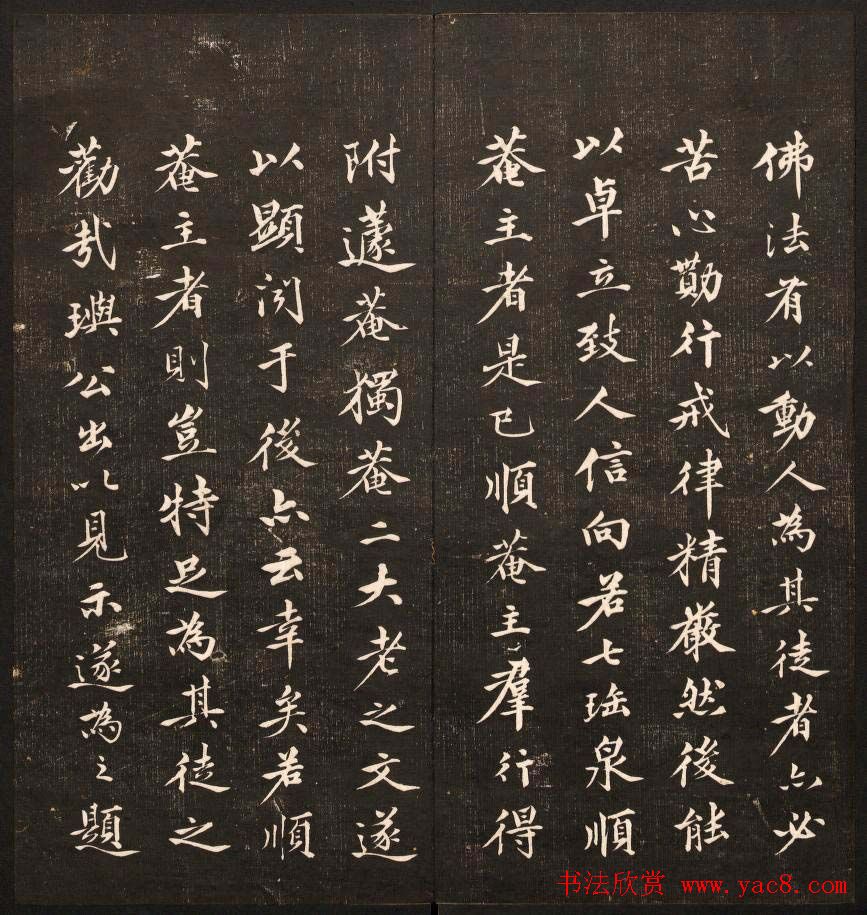 佛法有以動人為其徒者亦必
苦心勤行戒律精嚴然後能
以卓立致人信向若七瑶泉順
菴主者是已順菴主羣行得
附蘧菴獨菴二大老之文遂
以顯闻于後亦云幸矣若順
菴主者則豈特足為其徒之
勸哉璵公出以見示遂為之題
书法欣赏 www.yac8.com